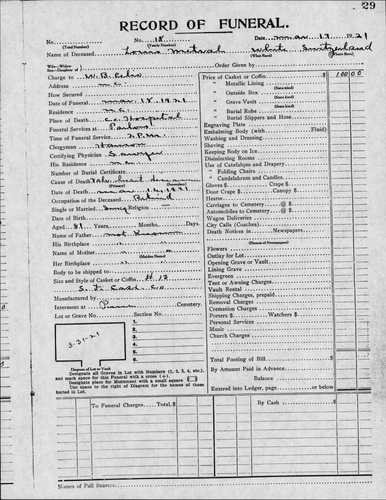 29
RECORD OF FUNERAL.
No. No. 18 Date Mar. 17, 1921
(Total Number) (Yearly Number)
Name of Deceased Louis White Switzerland
(What Race) (Where Born)
Wife-Widow
Son-Daughter of Order Given by
Charge to W. B.
Address
How Secured
Date of Funeral Mar. 18, 1921
Place of Death Co. Hospital
Funeral Services at Parlors
Time of Service 2 P.M.
Clergyman
Certifying Physician Sawyer
His Residence
Number of Burial Certificate
Cause of Death
(Primary) (Secondary)
Date of Death Mar. 1921
Occupation of the Deceased Retired
Single or Married Religion
Date of Birth
Aged 81 Years, Months, Days.
Name of Father Not Known
His Birthplace "
Name of Mother "
Her Birthplace "
Body to be shipped to
Size and Style of Casket or Coffin
S. F. Co.
Manufactured by
Interment at Cemetery.
Lot or Grave No. Section No.
3-31-21
1.
2.
3.
4.
5.
6.
Diagram of Lot or Vault
Designate all Graves in Lot with Numbers (1, 2, 3, 4, etc.),
and mark space for this Funeral with a cross (+).
Designate place for Monument with a small square □
Use space to the right of Diagram for the names of those
buried in Lot.
Price of Casket or Coffin $ 100 00
" Metallic Lining
(State Kind)
" Outside Box
(State Kind)
" Grave Vault
(State Kind)
" Burial Robe
" Burial Slippers and Hose
Engraving Plate
Embalming Body (with Fluid)
Washing and Dressing
Shaving
Keeping Body on Ice
Disinfecting Rooms
Use of Catafalque and Drapery
" Folding Chairs
" Candelabrum and Candles
Gloves $ Crape $
Door Crape $ Canopy $
Hearse
Carriages to Cemetery @ $
Automobiles to Cemetery @ $
Wagon Deliveries
City Calls (Coaches)
Death Notices in Newspapers
(Names of Newspapers)
Flowers
Outlay for Lot
Opening Grave or Vault
Lining Grave
Evergreen
Tent or Awning Charges
Vault Rental
Shipping Charges, prepaid
Removal Charges
Cremation Charges
Porters $ Watchers $
Personal Services
Music
Church Charges
Total Footing of Bill $
By Amount Paid in Advance
Balance $
Entered into Ledger, page or below
To Funeral Charges Total, $ $
Names of Pall Bearers: